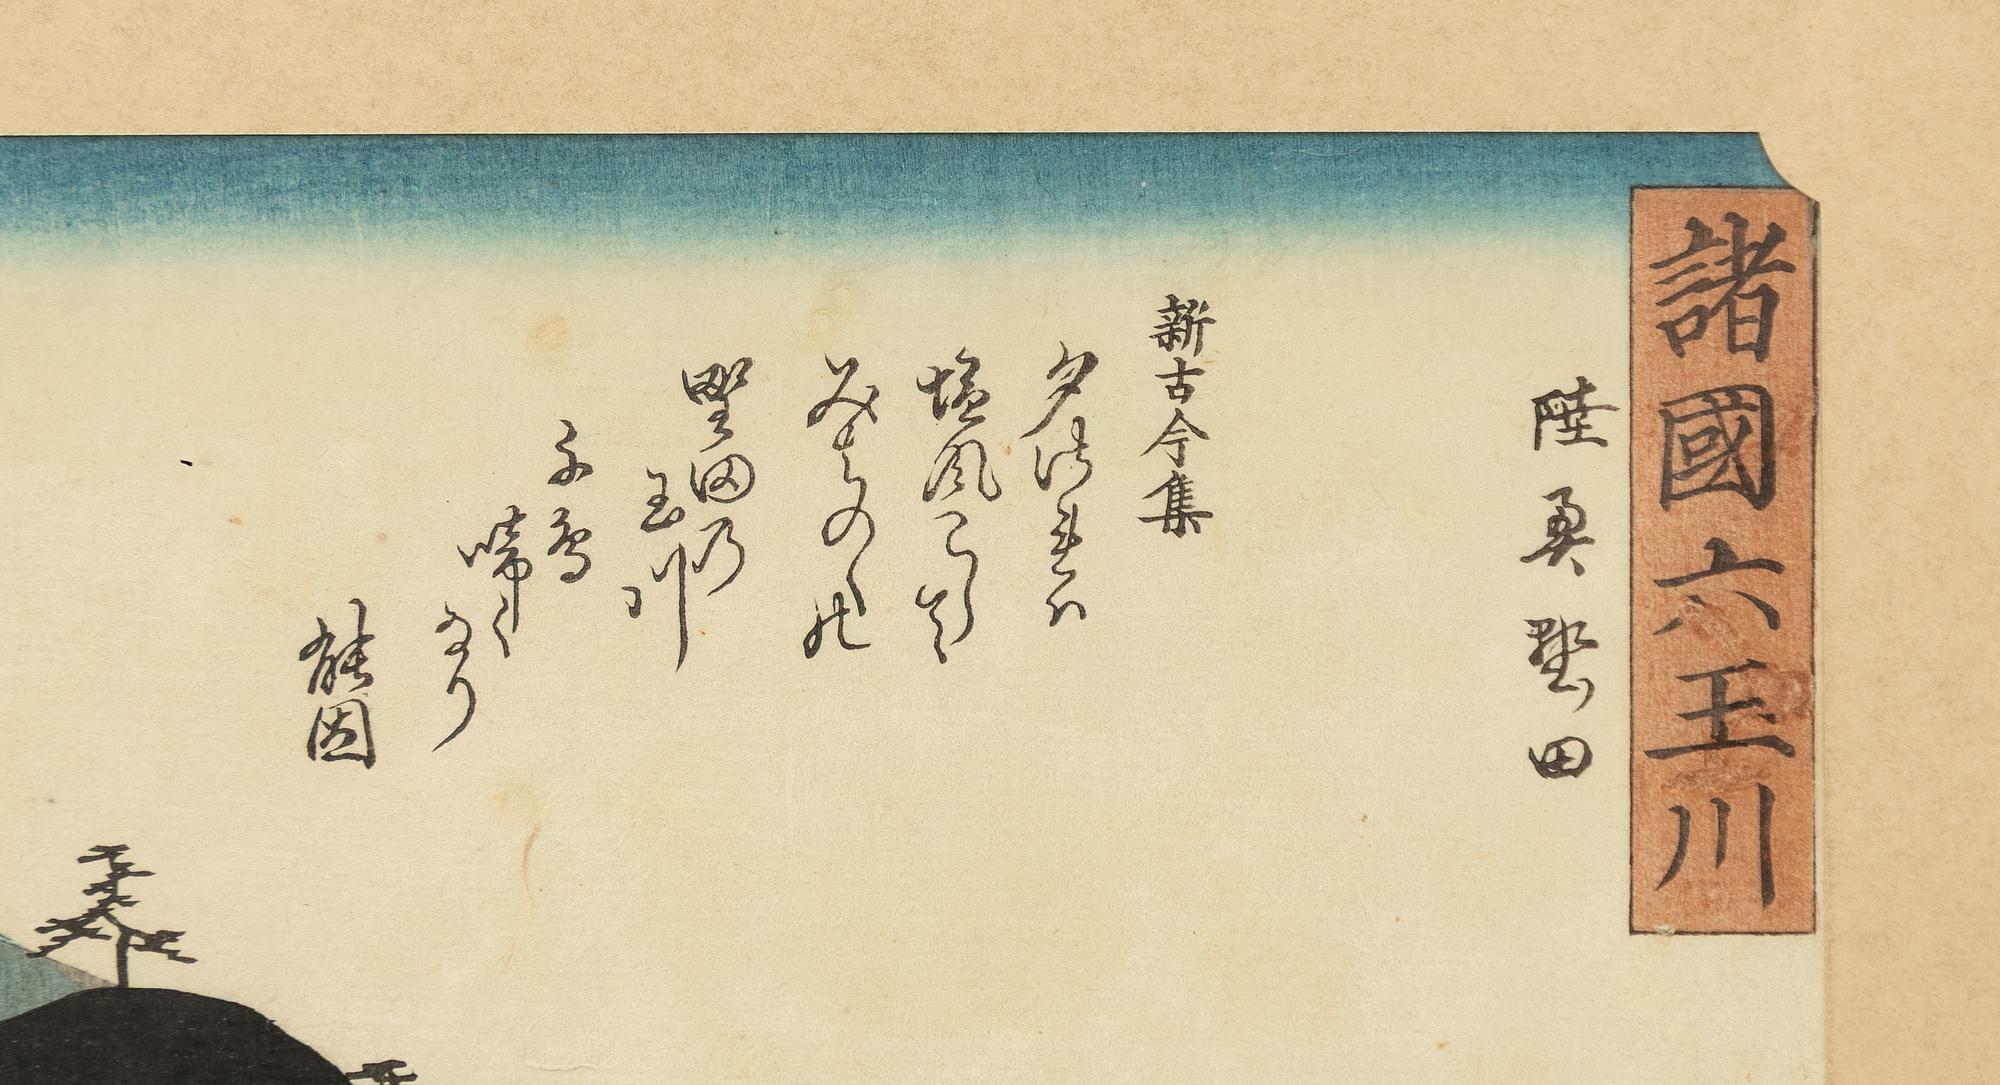 諸國六玉川
陸奥野田
新古今集
夕されハ
塩風こして
みちのくの
野田乃
玉川
千鳥
啼く
なり
能因